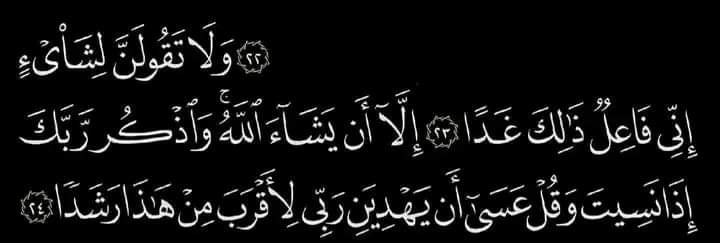 ۝٢٢ وَلَا تَقُولَنَّ لِشَا۟ىْءٍ
إِنِّى فَاعِلٌ ذَٰلِكَ غَدًا ۝٢٣ إِلَّآ أَن يَشَآءَ ٱللَّهُ ۚ وَٱذْكُر رَّبَّكَ
إِذَا نَسِيتَ وَقُلْ عَسَىٰٓ أَن يَهْدِيَنِ رَبِّى لِأَقْرَبَ مِنْ هَـٰذَا رَشَدًا ۝٢٤